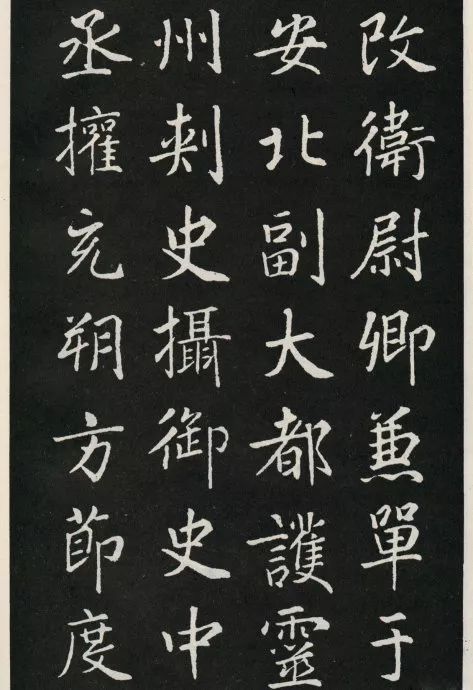 改衛尉卿兼單于
安北副大都護靈
州刾史攝御史中
丞擢充朔方節度